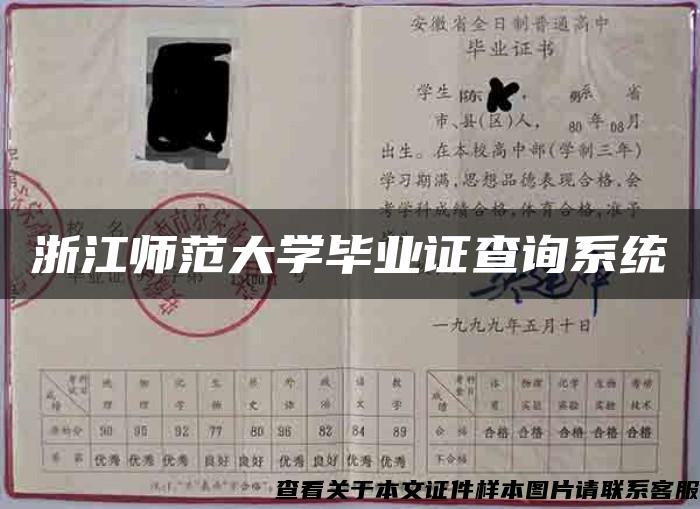 安徽省全日制普通高中
毕业证书
学生 陈 , 系 省
市、县(区)人, 80 年 08 月
出生。在本校高中部(学制三年)
学习期满,思想品德表现合格,会
考学科成绩合格,体育合格,准予
浙江师范大学毕业证查询系统
一九九九年五月十日
成绩 考试科目 地理 物理 化学 生物 历史 外语 政治 语文 数学
90 95 92 77 80 96 82 84 89
优秀 优秀 优秀 良好 良好 优秀 优秀 优秀 优秀
成绩 考查科目 体育 物理实验 化学实验 生物实验 劳动技术
合格 合格 合格 合格 合格 合格
不合格
查看关于本文证件样本图片请联系客服